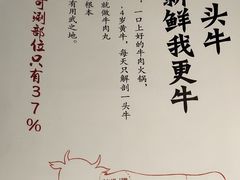 头牛
新鲜我更牛
一口上好的牛肉火锅，
4岁黄牛，每天只解剖一头牛
就做牛肉丸
根本
有用武之地。
可涮部位只有37%